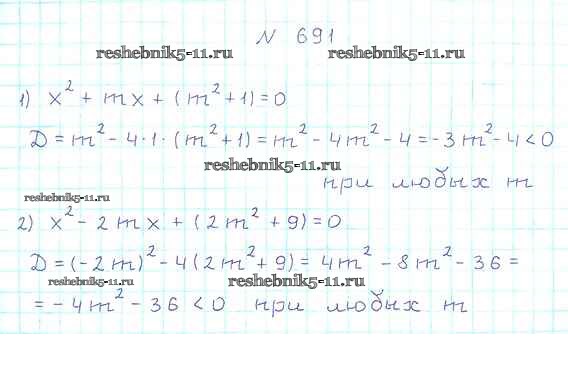 N 691
reshebnik5-11.ru reshebnik5-11.ru
1) x² + mx + (m² + 1) = 0
D = m² - 4·1·(m² + 1) = m² - 4m² - 4 = -3m² - 4 < 0
reshebnik5-11.ru
при любых m
reshebnik5-11.ru
2) x² - 2mx + (2m² + 9) = 0
D = (-2m)² - 4(2m² + 9) = 4m² - 8m² - 36 =
reshebnik5-11.ru reshebnik5-11.ru
= -4m² - 36 < 0 при любых m